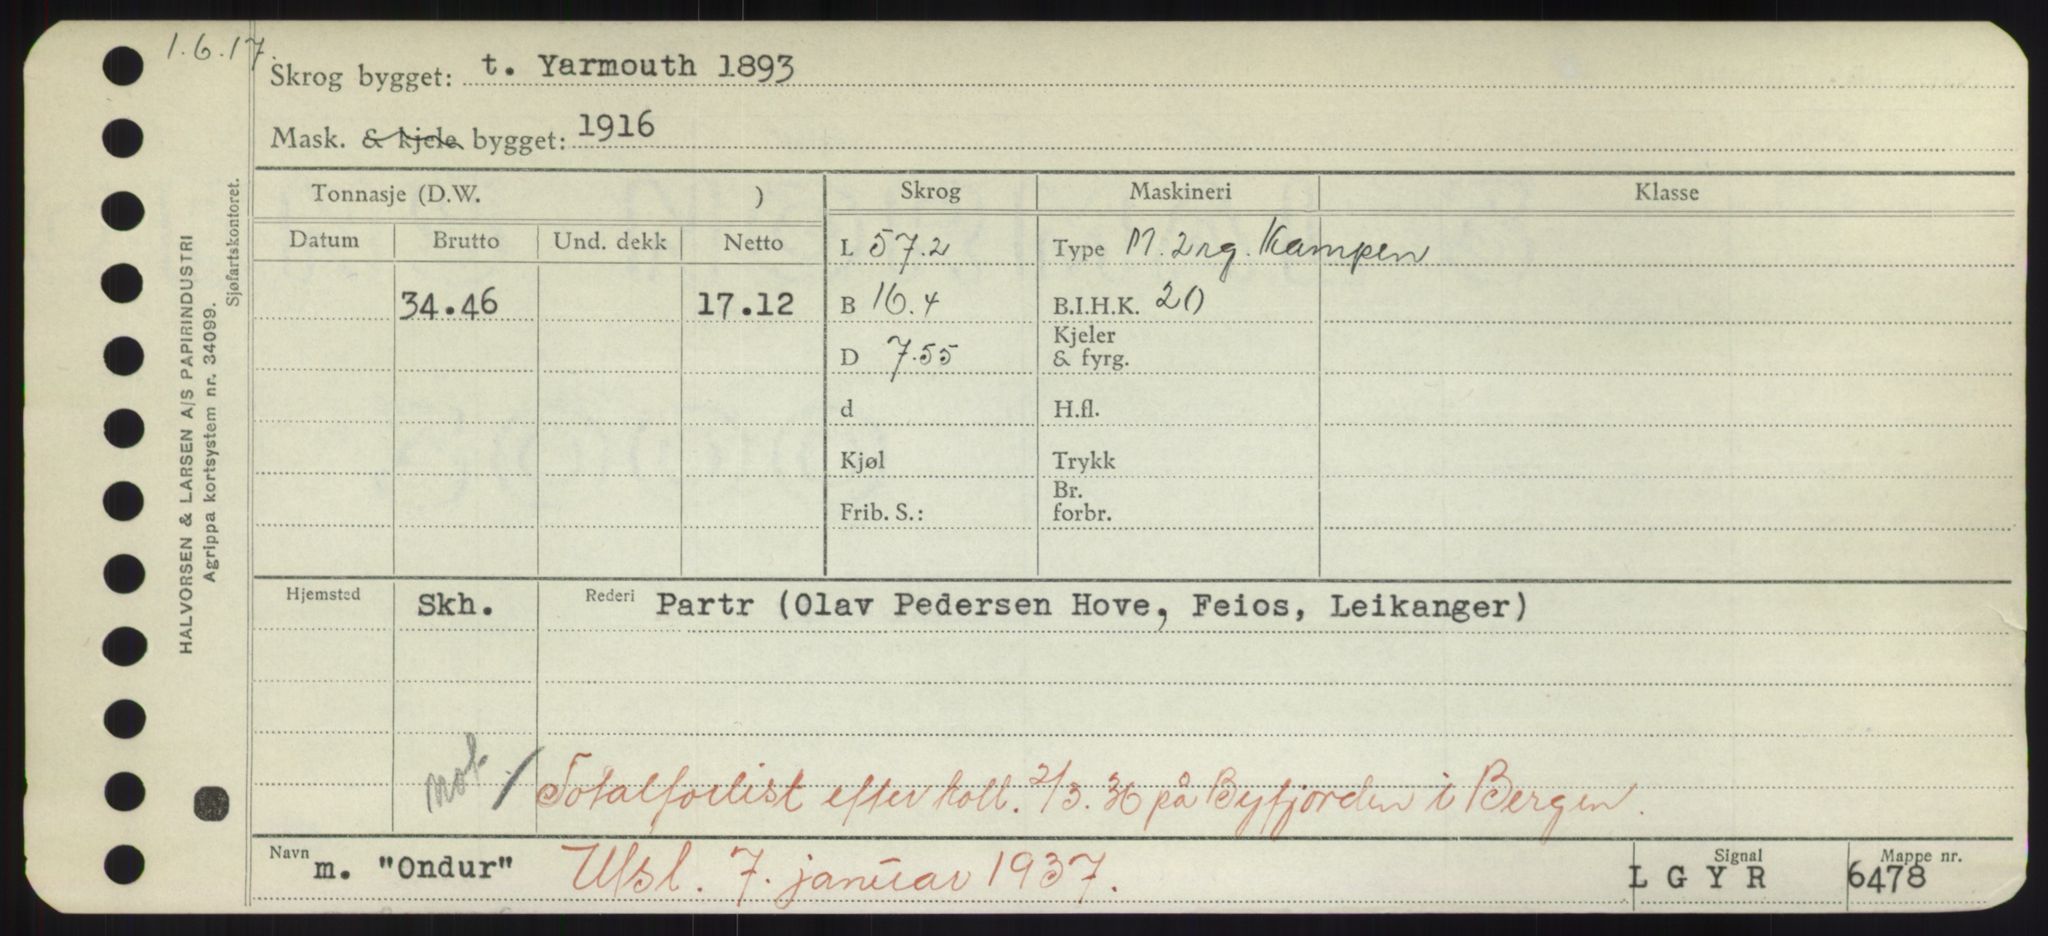 1.6.17.
Skrog bygget: t. Yarmouth 1893
Mask. & kjele bygget: 1916
Tonnasje (D.W. ) Skrog Maskineri Klasse
Datum Brutto Und. dekk Netto L 57.2 Type M. 2 rg. Kampen
34.46 17.12 B 16.4 B.I.H.K. 20
D 7.55 Kjeler & fyrg.
d H.fl.
Kjøl Trykk
Frib. S.: Br. forbr.
Hjemsted Skh. Rederi Partr (Olav Pedersen Hove, Feios, Leikanger)
not. / Totalforlist efter koll. 2/3.36 på Byfjorden i Bergen.
Navn m. "Ondur" Utsl. 7. januar 1937. Signal L G Y R Mappe nr. 6478
HALVORSEN & LARSEN A/S PAPIRINDUSTRI
Agrippa kortsystem nr. 34099.
Sjøfartskontoret.